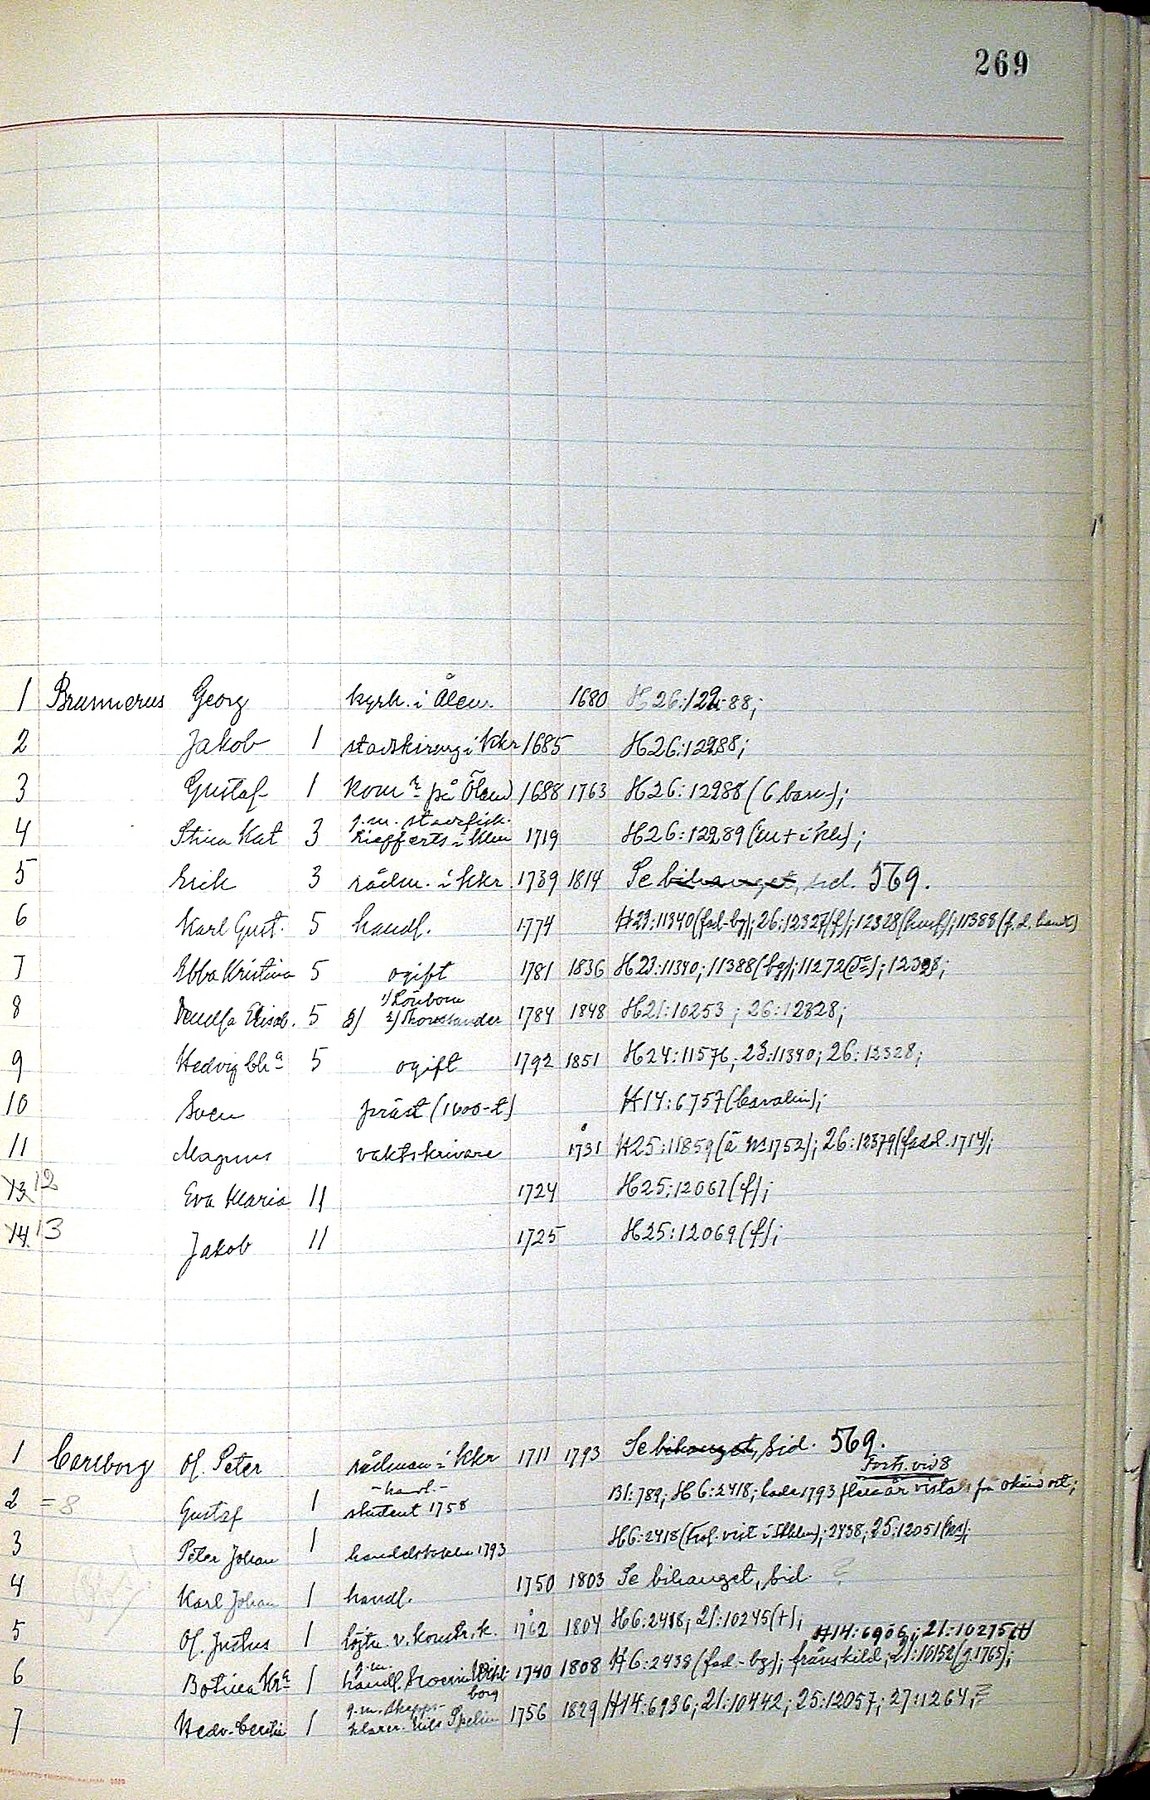 269
1 Brunnerus Georg kyrkh. i Ålem 1680 H26:12988;
2 Jakob 1 stadskirurg i Kkr 1685 H26:12988;
3 Gustaf 1 Kom:r på Öland 1688 1763 H26:12988 (6 barn);
g.m. stadsfisk.
4 Stina Kat 3 i Klm 1719 H26:12989
5 Erik 3 rådm. i Kkr. 1739 1814 Se bihanget, sid. 569.
6 Karl Gust. 5 handl. 1774 H23:11340 (fad-bg); 26:12327(f); 12328
7 Ebba Kristina 5 ogift 1781 1836 H23:11340; 11388(bg); 11272; 12328;
8 Elisab. 5 1784 1848 H21:10253; 26:12328;
9 Hedvig Ch:a 5 ogift 1792 1851 H24:11576; 23:11340; 26:12328;
10 Sven präst (1600-t) H14:6757 (Cavalin);
11 Magnus vaktskrivare 1731 H25:11859 ; 26:12379
13 12 Eva Maria 11 1724 H25:12067 (f);
14 13 Jakob 11 1725 H25:12069 (f);
1 Carlborg Ol. Peter rådman i Kkr 1711 1793 Se bihanget, sid. 569.
Forts. vid 8
- handl. -
2 = 8 Gustaf 1 student 1758 Bl:789; H6:2418; hade 1793 flera år vistats på okänd ort;
3 Peter Johan 1 1793 H6:2418 ; 2438; 25:12051
4 Karl Johan 1 handl. 1750 1803 Se bihanget, sid. ?
5 Ol. Justus 1 löjtn. v. Konstr.k. 1762 1804 H6:2418; 21:10245(+); H14:6906; 21:10275
g.m.
6 Botilla 1 handl. 1740 1808 H6:2438 (fad.-bg); frånskild; 21:10152 (g.1765);
borg
g.m. skepps-
7 Hedv. Cecilia 1 klarer. Nils 1756 1829 H14:6936; 21:10442; 25:12057; 27:1264; ?